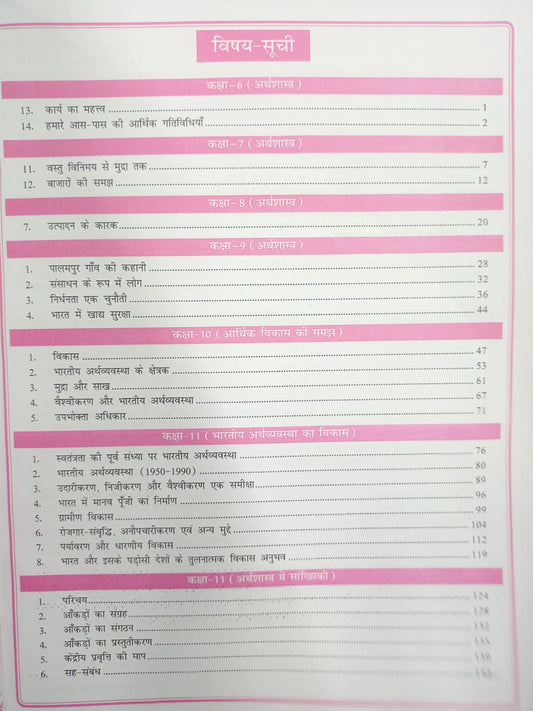 विषय-सूची
कक्षा-6 (अर्थशास्त्र)
13. कार्य का महत्त्व 1
14. हमारे आस-पास की आर्थिक गतिविधियाँ 2
कक्षा-7 (अर्थशास्त्र)
11. वस्तु विनिमय से मुद्रा तक 7
12. बाजारों की समझ 12
कक्षा-8 (अर्थशास्त्र)
7. उत्पादन के कारक 20
कक्षा-9 (अर्थशास्त्र)
1. पालमपुर गाँव की कहानी 28
2. संसाधन के रूप में लोग 32
3. निर्धनता एक चुनौती 36
4. भारत में खाद्य सुरक्षा 44
कक्षा-10 (आर्थिक विकास की समझ)
1. विकास 47
2. भारतीय अर्थव्यवस्था के क्षेत्रक 53
3. मुद्रा और साख 61
4. वैश्वीकरण और भारतीय अर्थव्यवस्था 67
5. उपभोक्ता अधिकार 71
कक्षा-11 (भारतीय अर्थव्यवस्था का विकास)
1. स्वतंत्रता की पूर्व संध्या पर भारतीय अर्थव्यवस्था 76
2. भारतीय अर्थव्यवस्था (1950-1990) 80
3. उदारीकरण, निजीकरण और वैश्वीकरण एक समीक्षा 89
4. भारत में मानव पूँजी का निर्माण 96
5. ग्रामीण विकास 99
6. रोजगार-संवृद्धि, अनौपचारीकरण एवं अन्य मुद्दे 104
7. पर्यावरण और धारणीय विकास 112
8. भारत और इसके पड़ोसी देशों के तुलनात्मक विकास अनुभव 119
कक्षा-11 (अर्थशास्त्र में सांख्यिकी)
1. परिचय 124
2. आँकड़ों का संग्रह 128
3. आँकड़ों का संगठन
4. आँकड़ों का प्रस्तुतीकरण
5. केंद्रीय प्रवृत्ति की माप
6. सह-संबंध